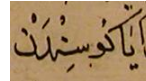 اَيَاكُوسِتِدَنْ